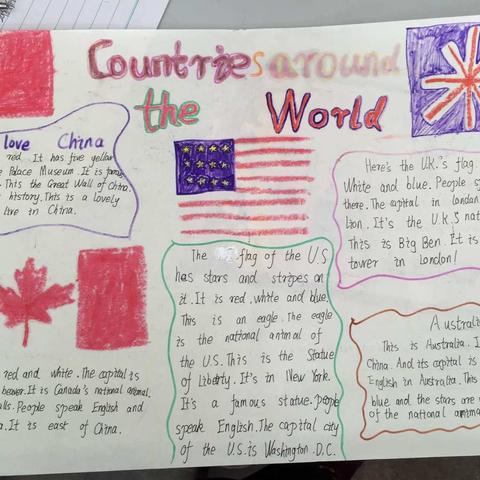 Countries around
the World
love China
red. It has five yellow
Palace Museum. It is famous
This the Great Wall of China.
history. This is a lovely
live in China.
red and white. The capital is
beaver. It is Canada's national animal.
alls. People speak English and
a. It is east of China.
The flag of the U.S
has stars and stripes on
it. It is red, white and blue.
This is an eagle. The eagle
is the national animal of
the U.S. This is the Statue
of Liberty. It's in New York.
It's a famous statue. people
speak English. The capital city
of the U.S. is Washington .D.C.
Here's the U.K.'s flag
White and blue. People
there. The capital in london
lion. It's the U.K.S
This is Big Ben. It is
tower in London!
Australia
This is Australia.
China. And its capital is
English in Australia. This
blue and the stars are
of the national animal